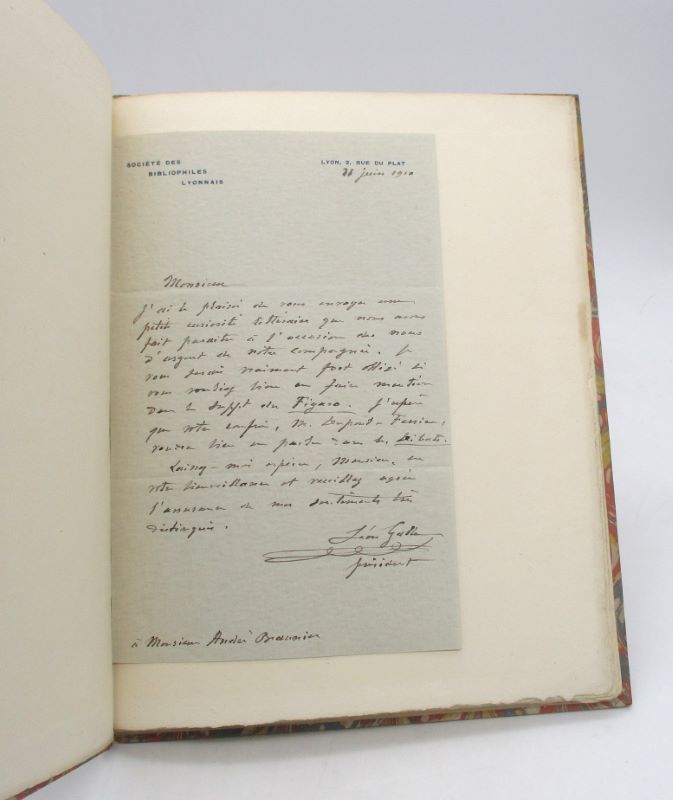 SOCIÉTÉ DES
BIBLIOPHILES
LYONNAIS
LYON, 2, RUE DU PLAT
juin 1910
Monsieur
J'ai le plaisir de vous envoyer une
petite curiosité littéraire que nous avons
fait paraître à l'occasion des noces
d'argent de notre compagnie. Je
vous serais vraiment fort obligé si
vous vouliez bien en faire mention
dans le Supplt du Figaro. J'espère
que votre confrère, M.
voudra bien en parler dans les Débats.
Laissez-moi espérer, Monsieur, en
votre bienveillance et veuillez agréer
l'assurance de mes sentiments très
distingués.
Léon Galle
président
à Monsieur André Beaunier